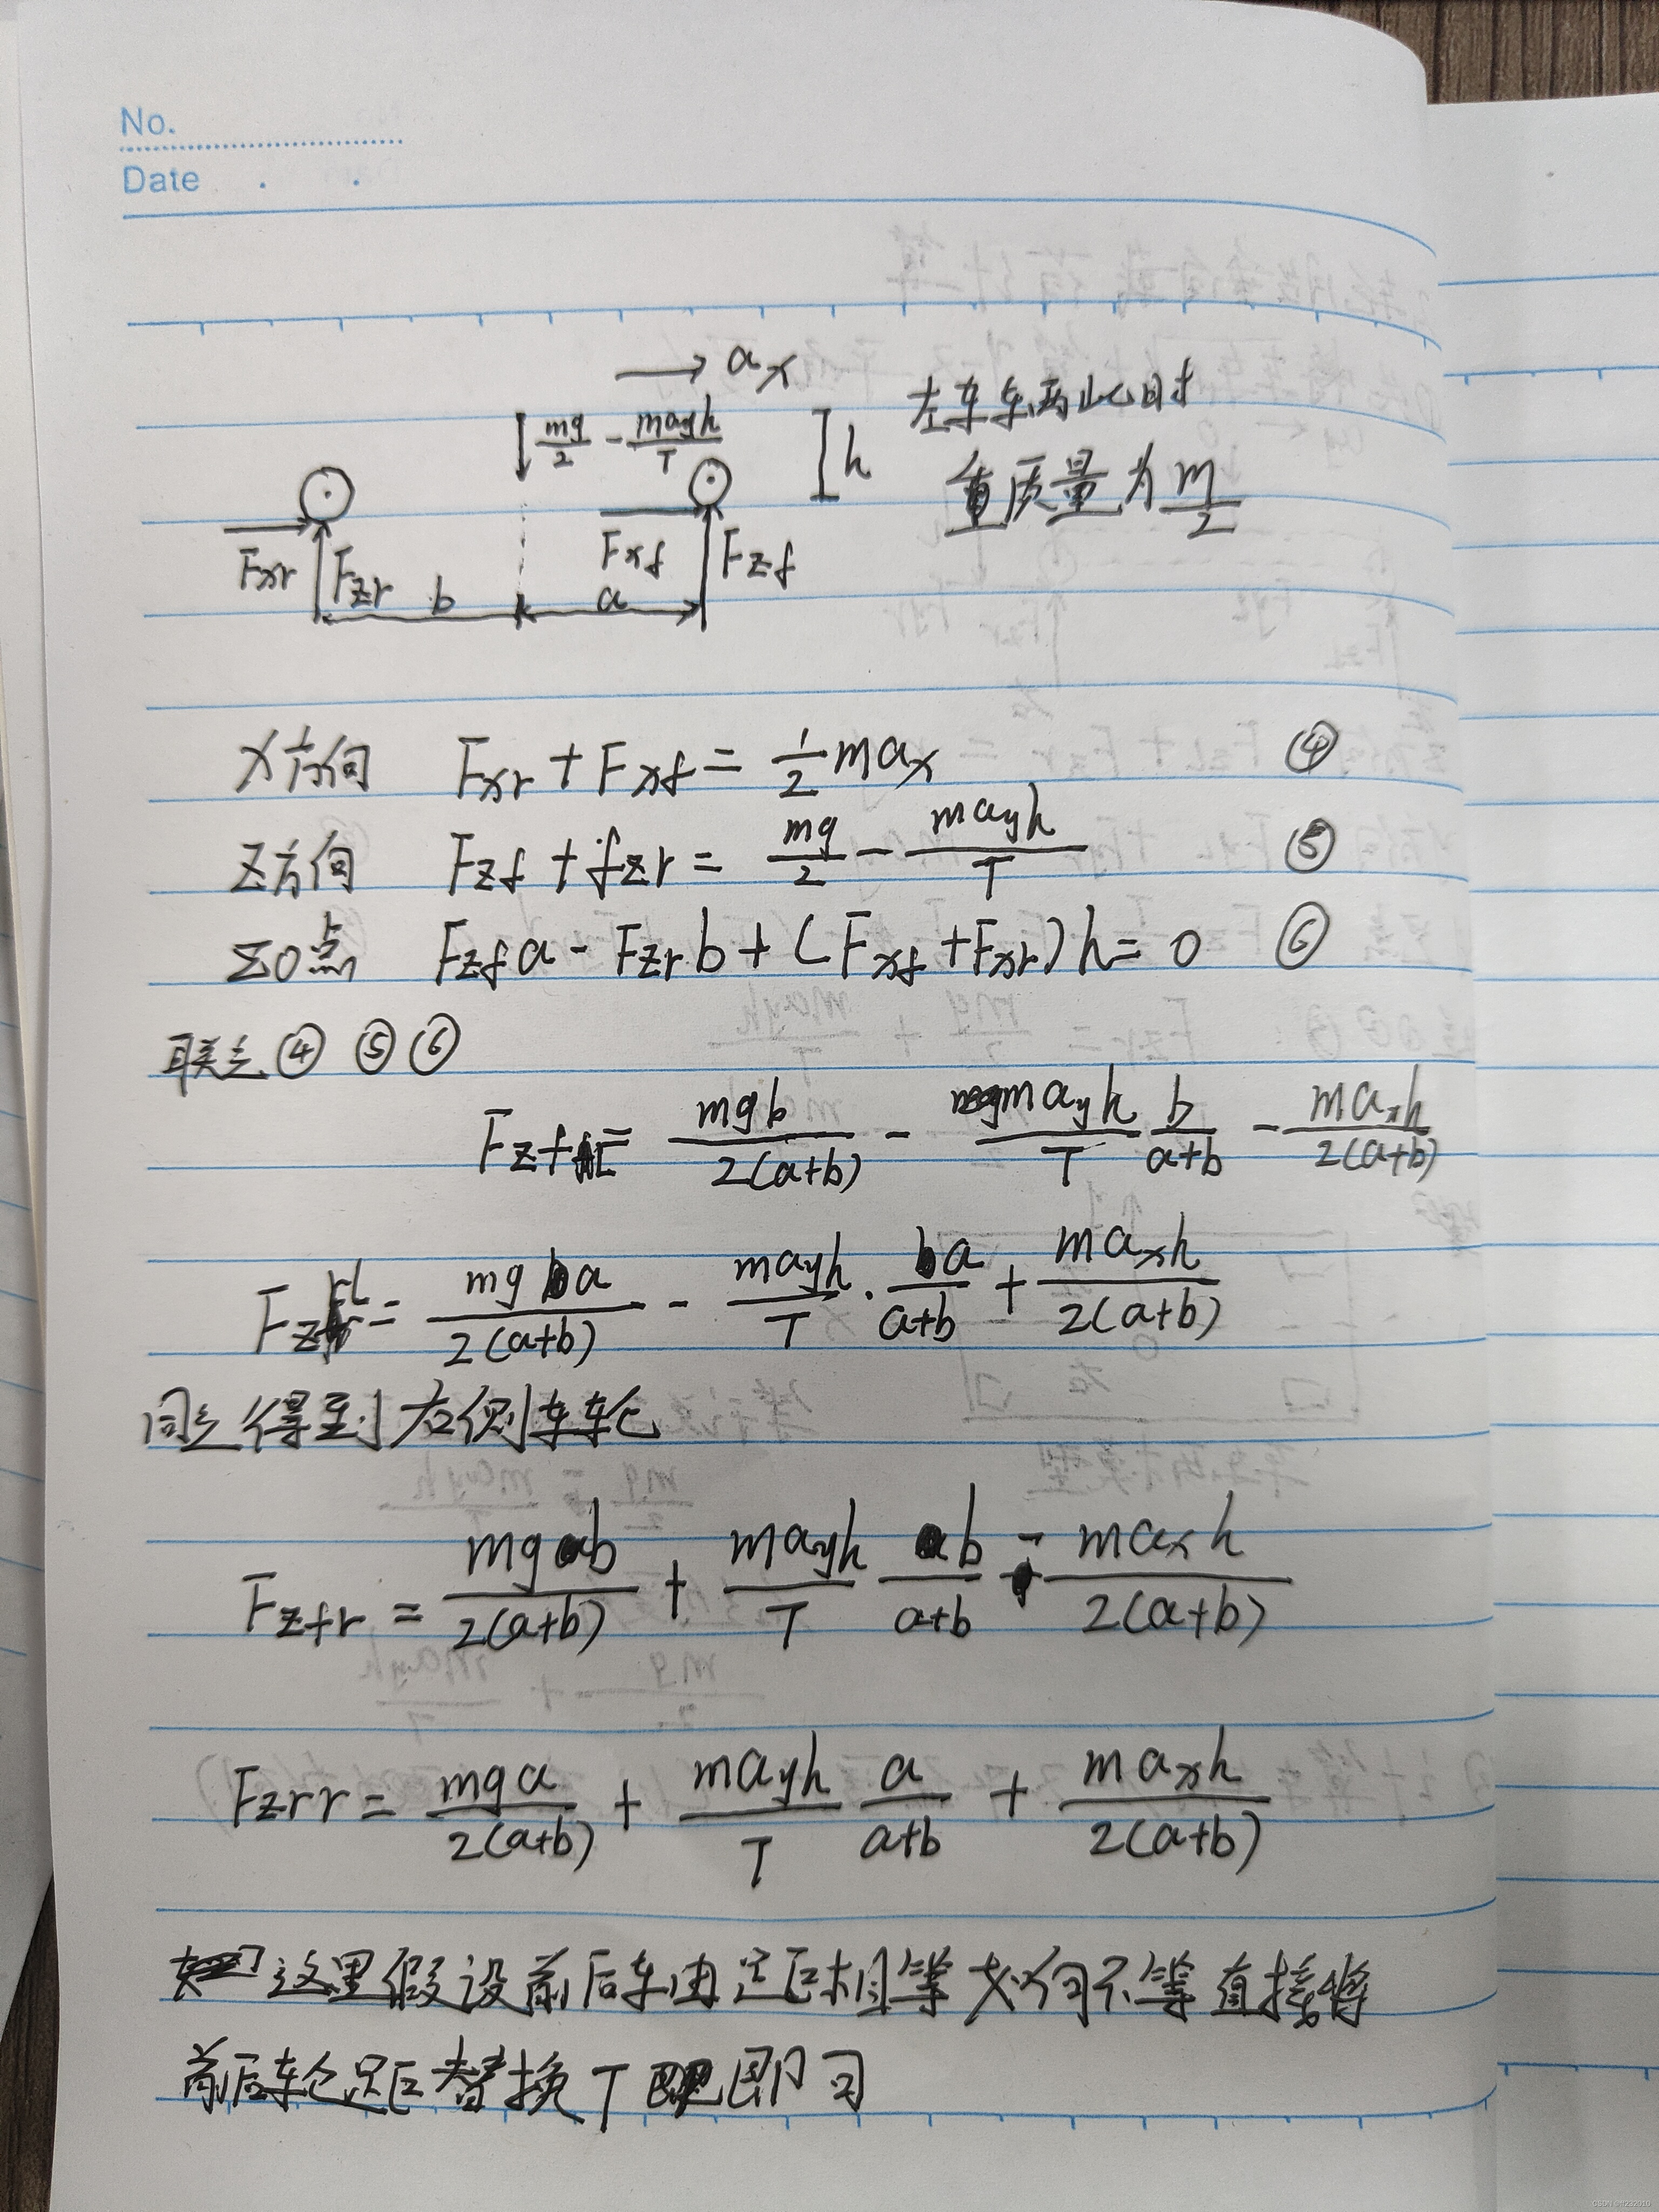 No.
Date
→ aₓ
mg/2 - ma_yh/T
h
左车车两此时
质量为 m/2
Fxr Fzr b Fxf a Fzf
X方向 Fxr + Fxf = 1/2 maₓ ④
Z方向 Fzf + fzr = mg/2 - ma_yh/T ⑤
Σ0点 Fzf a - Fzr b + (Fxf + Fxr) h = 0 ⑥
联立 ④ ⑤ ⑥
Fzfl = mgb/2(a+b) - ma_yh/T b/a+b - maₓh/2(a+b)
Fzrl = mga/2(a+b) - ma_yh/T · a/a+b + maₓh/2(a+b)
同立得到右侧车轮
Fzfr = mgb/2(a+b) + ma_yh/T b/a+b - maₓh/2(a+b)
Fzrr = mga/2(a+b) + ma_yh/T a/a+b + maₓh/2(a+b)
这里假设前后车由足巨相等 如何不等 直接将
前后轮足巨替换 T 即可
CSDN @tt232010